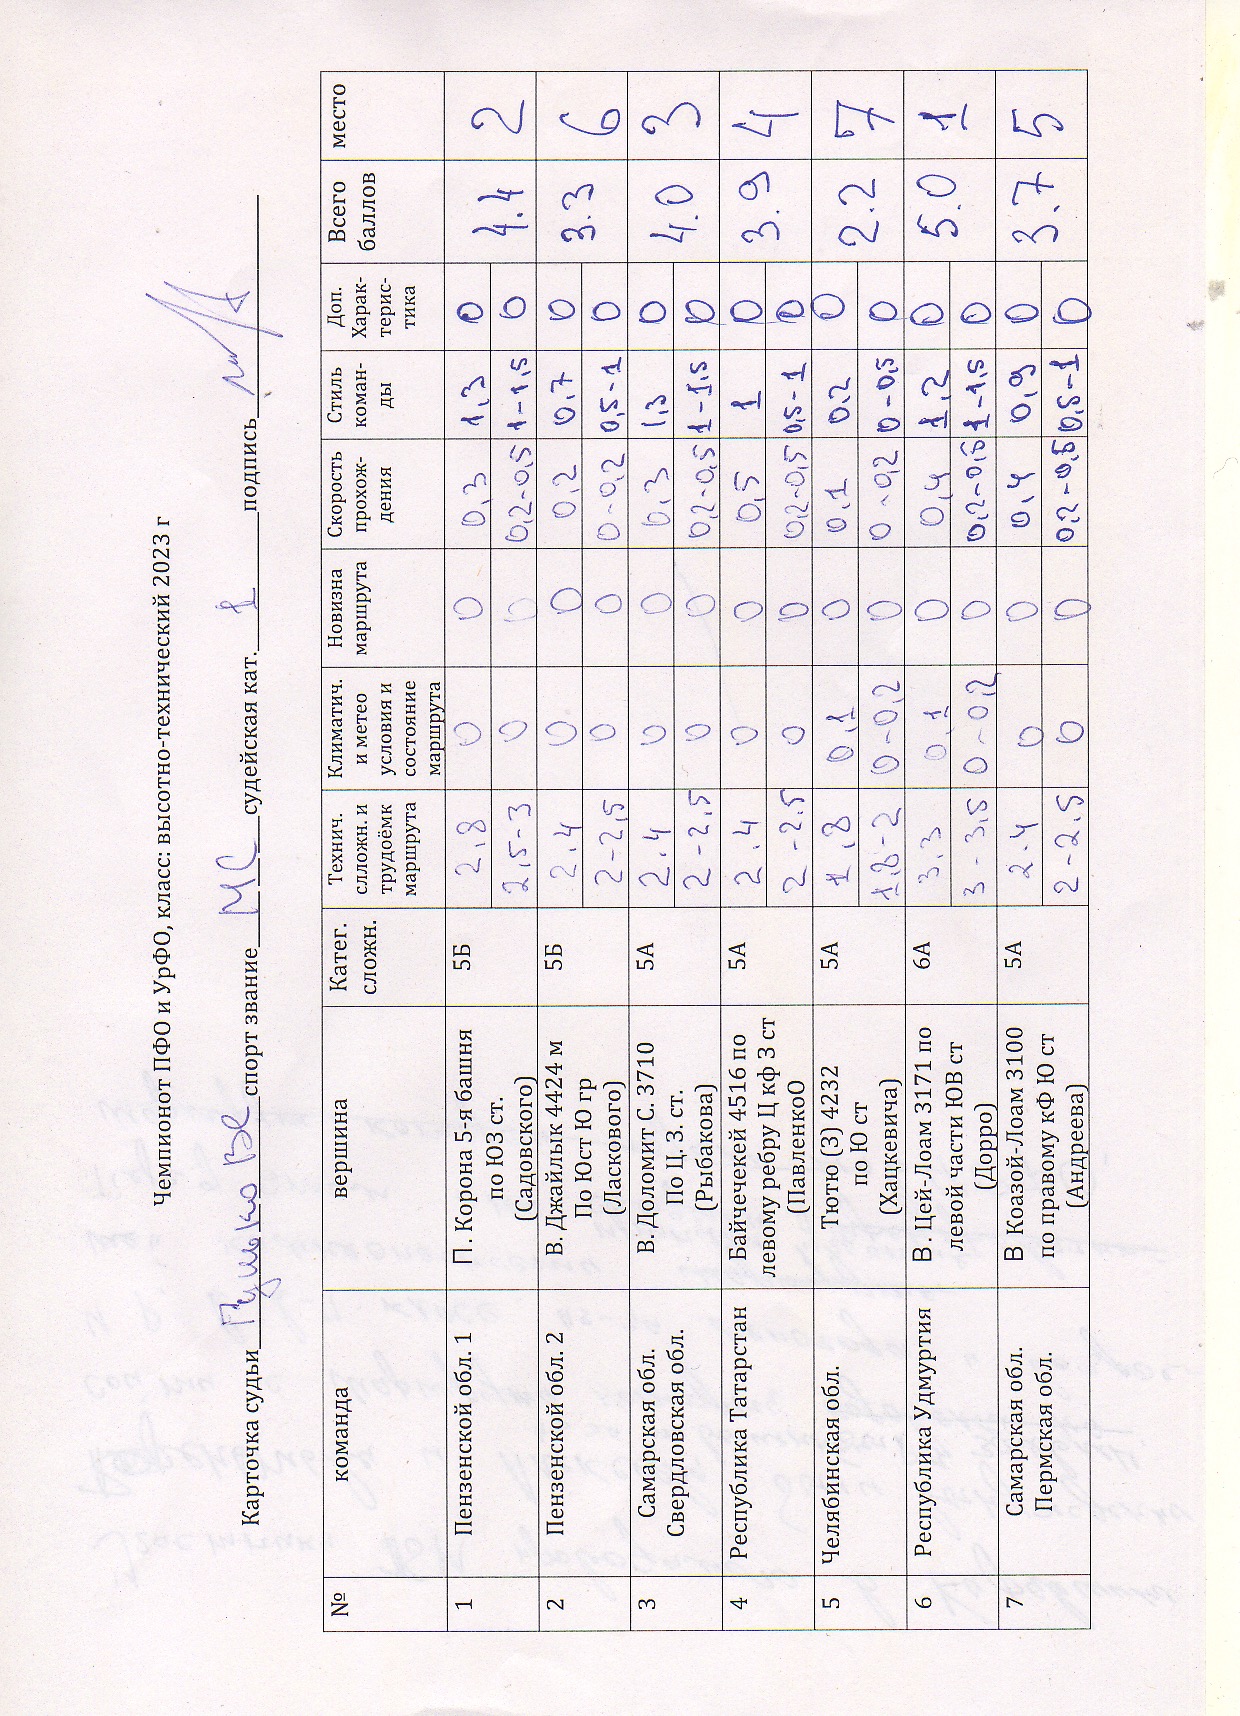 Чемпионот ПФО и УрФО, класс: высотно-технический 2023 г
Карточка судьи спорт звание МС судейская кат. 1 подпись
№ команда вершина Катег. сложн. Технич. слложн. и трудоёмк маршрута Климатич. и метео условия и состояние маршрута Новизна маршрута Скорость прохож-дения Стиль коман-ды Доп. Харак-терис-тика Всего баллов место
1 Пензенской обл. 1 П. Корона 5-я башня 5Б 2,8 0 0 0,3 1,3 0 4.4 2
по ЮЗ ст.
(Садовского) 2,5-3 0 0 0,2-0,5 1-1,5 0
2 Пензенской обл. 2 В. Джайлык 4424 м 5Б 2.4 0 0 0,2 0,7 0 3.3 6
По Юст Ю гр
(Ласкового) 2-2,5 0 0 0-0,2 0,5-1 0
3 Самарская обл. В. Доломит С. 3710 5А 2.4 0 0 0,3 1,3 0 4.0 3
Свердловская обл. По Ц. З. ст.
(Рыбакова) 2-2,5 0 0 0,2-0,5 1-1,5 0
4 Республика Татарстан Байчечекей 4516 по 5А 2.4 0 0 0,5 1 0 3.9 4
левому ребру Ц кф З ст
(ПавленкоО 2-2.5 0 0 0,2-0,5 0,5-1 0
5 Челябинская обл. Тютю (З) 4232 5А 1,8 0,1 0 0,1 0,2 0 2.2 7
по Ю ст
(Хацкевича) 1,8-2 0-0,2 0 0-0,2 0-0,5 0
6 Республика Удмуртия В. Цей-Лоам 3171 по 6А 3.3 0,1 0 0,4 1,2 0 5.0 1
левой части ЮВ ст
(Дорро) 3-3,5 0-0,2 0 0,2-0,5 1-1,5 0
7 Самарская обл. В Коазой-Лоам 3100 5А 2.4 0 0 0,4 0,9 0 3.7 5
Пермская обл. по правому кФ Ю ст
(Андреева) 2-2.5 0 0 0,2-0,5 0,5-1 0